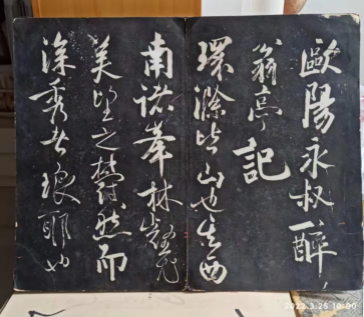 歐陽永叔醉
翁亭記
環滁皆山也其西
南諸峯林壑尤
美望之蔚然而
深秀者琅耶也
2022.3.26 10:00